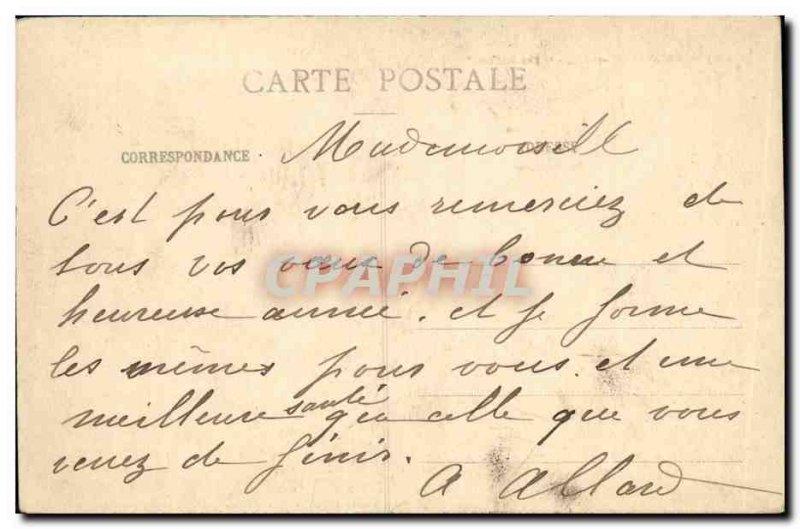 CARTE POSTALE
CORRESPONDANCE Mademoisell ADRESSE
C'est pour vous remerciez de
tous vos vœux de bonne et
CPAPHIL
heureuse année. et je forme
les mêmes pour vous. et une
meilleure santé que celle que vous
venez de finir.
A Allard